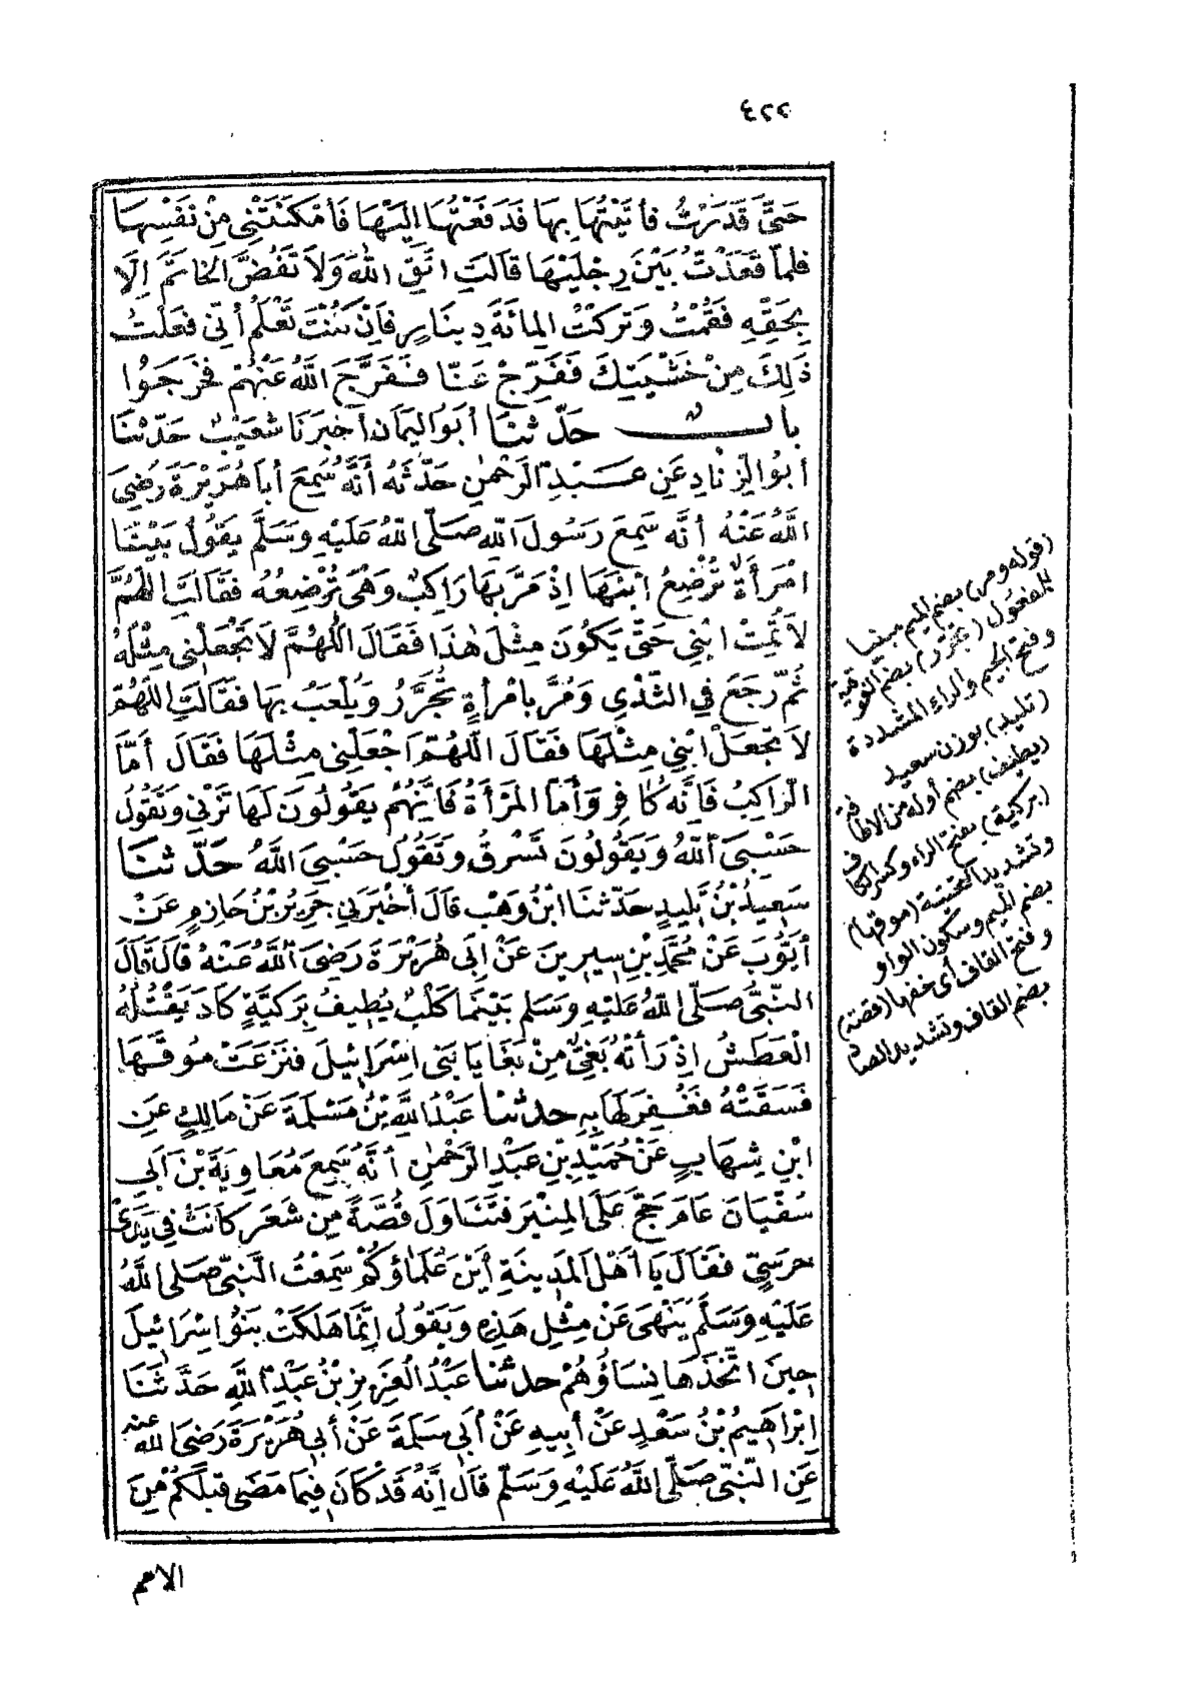 ٤٢٢
حَتَّى قَدَرْتُ فَأَتَيْتُهَا بِهَا فَدَفَعْتُهَا إِلَيْهَا فَأَمْكَنَتْنِي مِنْ نَفْسِهَا
فَلَمَّا قَعَدْتُ بَيْنَ رِجْلَيْهَا قَالَتِ اتَّقِ اللهَ وَلَا تَفُضَّ الخَاتَمَ إِلَّا
بِحَقِّهِ فَقُمْتُ وَتَرَكْتُ المِائَةَ دِينَارٍ فَإِنْ كُنْتَ تَعْلَمُ أَنِّي فَعَلْتُ
ذَلِكَ مِنْ خَشْيَتِكَ فَفَرِّجْ عَنَّا فَفَرَّجَ اللهُ عَنْهُمْ فَخَرَجُوا
بابٌ حَدَّثَنَا أَبُو اليَمَانِ أَخْبَرَنَا شُعَيْبٌ حَدَّثَنَا
أَبُو الزِّنَادِ عَنْ عَبْدِ الرَّحْمٰنِ حَدَّثَهُ أَنَّهُ سَمِعَ أَبَا هُرَيْرَةَ رَضِيَ
اللهُ عَنْهُ أَنَّهُ سَمِعَ رَسُولَ اللهِ صَلَّى اللهُ عَلَيْهِ وَسَلَّمَ يَقُولُ بَيْنَا
امْرَأَةٌ تُرْضِعُ ابْنَهَا إِذْ مَرَّ بِهَا رَاكِبٌ وَهْيَ تُرْضِعُهُ فَقَالَتِ اللَّهُمَّ
لَا تُمِتْ ابْنِي حَتَّى يَكُونَ مِثْلَ هٰذَا فَقَالَ اللَّهُمَّ لَا تَجْعَلْنِي مِثْلَهُ
ثُمَّ رَجَعَ فِي الثَّدْيِ وَمُرَّ بِامْرَأَةٍ تُجَرَّرُ وَيُلْعَبُ بِهَا فَقَالَتِ اللَّهُمَّ
لَا تَجْعَلْ ابْنِي مِثْلَهَا فَقَالَ اللَّهُمَّ اجْعَلْنِي مِثْلَهَا فَقَالَ أَمَّا
الرَّاكِبُ فَإِنَّهُ كَافِرٌ وَأَمَّا المَرْأَةُ فَإِنَّهُمْ يَقُولُونَ لَهَا تَزْنِي وَتَقُولُ
حَسْبِيَ اللهُ وَيَقُولُونَ تَسْرِقُ وَتَقُولُ حَسْبِيَ اللهُ حَدَّثَنَا
سَعِيدُ بْنُ تَلِيدٍ حَدَّثَنَا ابْنُ وَهْبٍ قَالَ أَخْبَرَنِي جَرِيرُ بْنُ حَازِمٍ عَنْ
أَيُّوبَ عَنْ مُحَمَّدِ بْنِ سِيرِينَ عَنْ أَبِي هُرَيْرَةَ رَضِيَ اللهُ عَنْهُ قَالَ قَالَ
النَّبِيُّ صَلَّى اللهُ عَلَيْهِ وَسَلَّمَ بَيْنَمَا كَلْبٌ يُطِيفُ بِرَكِيَّةٍ كَادَ يَقْتُلُهُ
العَطَشُ إِذْ رَأَتْهُ بَغِيٌّ مِنْ بَغَايَا بَنِي إِسْرَائِيلَ فَنَزَعَتْ مُوقَهَا
فَسَقَتْهُ فَغُفِرَ لَهَا بِهِ حدثنا عَبْدُ اللهِ بْنُ مَسْلَمَةَ عَنْ مَالِكٍ عَنِ
ابْنِ شِهَابٍ عَنْ حُمَيْدِ بْنِ عَبْدِ الرَّحْمٰنِ أَنَّهُ سَمِعَ مُعَاوِيَةَ بْنَ أَبِي
سُفْيَانَ عَامَ حَجَّ عَلَى المِنْبَرِ فَتَنَاوَلَ قُصَّةً مِنْ شَعَرٍ كَانَتْ فِي يَدَيْ
حَرَسِيٍّ فَقَالَ يَا أَهْلَ المَدِينَةِ أَيْنَ عُلَمَاؤُكُمْ سَمِعْتُ النَّبِيَّ صَلَى اللهُ
عَلَيْهِ وَسَلَّمَ يَنْهَى عَنْ مِثْلِ هَذِهِ وَيَقُولُ إِنَّمَا هَلَكَتْ بَنُو إِسْرَائِيلَ
حِينَ اتَّخَذَهَا نِسَاؤُهُمْ حدثنا عَبْدُ العَزِيزِ بْنُ عَبْدِ اللهِ حَدَّثَنَا
إِبْرَاهِيمُ بْنُ سَعْدٍ عَنْ أَبِيهِ عَنْ أَبِي سَلَمَةَ عَنْ أَبِي هُرَيْرَةَ رَضِيَ اللهُ عنه
عَنِ النَّبِيِّ صَلَّى اللهُ عَلَيْهِ وَسَلَّمَ قَالَ إِنَّهُ قَدْ كَانَ فِيمَا مَضَى قَبْلَكُمْ مِنَ
الامم
(قوله ومر) بضم الميم مبنيا
للمفعول (تجرر) بضم الفوقية
وفتح الجيم والراء المشددة
(تليد) بوزن سعيد
(يطيف) بضم أوله من الاطافة
(بركية) بفتح الراء وكسر الكاف
وتشديد التحتية (موقها)
بضم الميم وسكون الواو
وفتح القاف أى خفها (قصة)
بضم القاف وتشديد الصاد